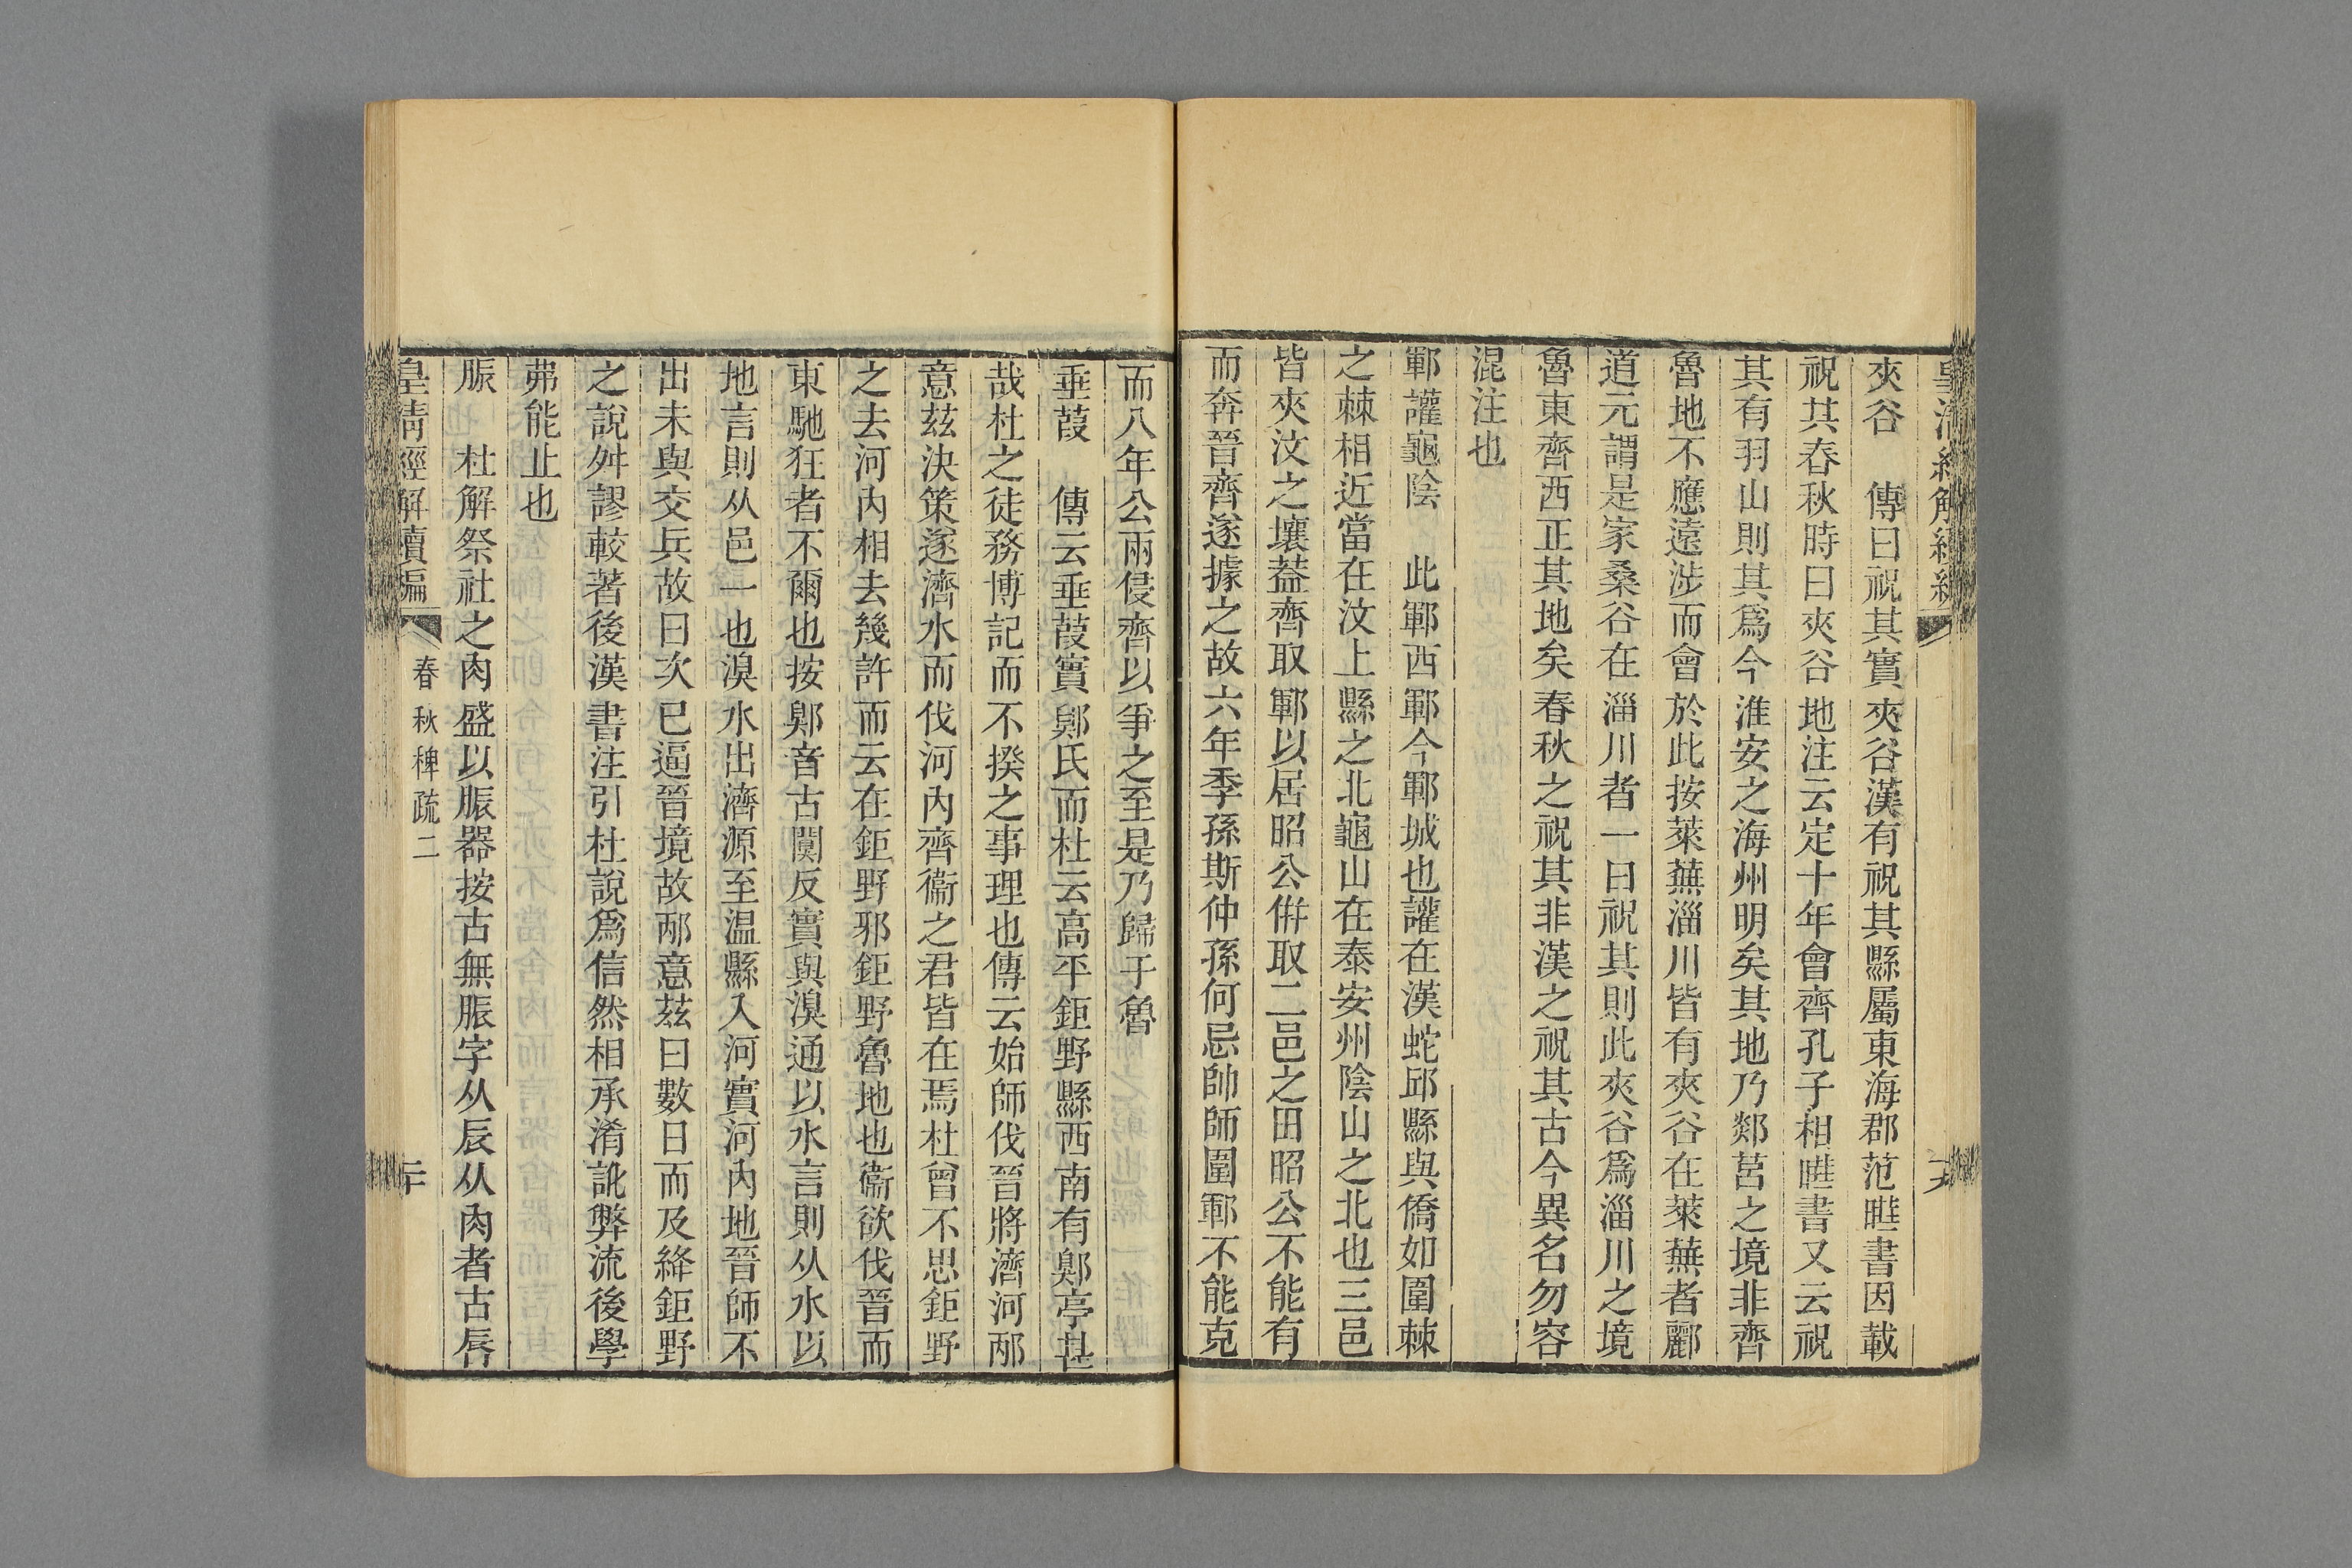 夾谷　傳曰祝其實夾谷漢有祝其縣屬東海郡范曄書因載
祝其春秋時曰夾谷地注云定十年會齊孔子相曄書又云祝
其有羽山則其爲今淮安之海州明矣其地乃郯莒之境非齊
魯地不應遠涉而會於此按萊蕪淄川皆有夾谷在萊蕪者酈
道元謂是家桑谷在淄川者一曰祝其則此夾谷爲淄川之境
魯東齊西正其地矣春秋之祝其非漢之祝其古今異名勿容
混注也
鄆讙龜陰　此鄆西鄆今鄆城也讙在漢蛇邱縣與僑如圍棘
之棘相近當在汶上縣之北龜山在泰安州陰山之北也三邑
皆夾汶之壤葢齊取鄆以居昭公倂取二邑之田昭公不能有
而奔晉齊遂據之故六年季孫斯仲孫何忌帥師圍鄆不能克
而八年公兩侵齊以爭之至是乃歸于魯
垂葭　傳云垂葭實郹氏而杜云高平鉅野縣西南有郹亭甚
哉杜之徒務博記而不揆之事理也傳云始師伐晉將濟河邴
意茲決策遂濟水而伐河內齊衞之君皆在焉杜曾不思鉅野
之去河內相去幾許而云在鉅野邪鉅野魯地也衞欲伐晉而
東馳狂者不爾也按郹音古闃反實與湨通以水言則从水以
地言則从邑一也湨水出濟源至温縣入河實河內地晉師不
出未與交兵故曰次已逼晉境故邴意茲曰數日而及絳鉅野
之說舛謬較著後漢書注引杜說爲信然相承淆訛弊流後學
弗能止也
脤　杜解祭社之肉盛以脤器按古無脤字从辰从肉者古脣
皇清經解續編　春秋稗疏二　二十